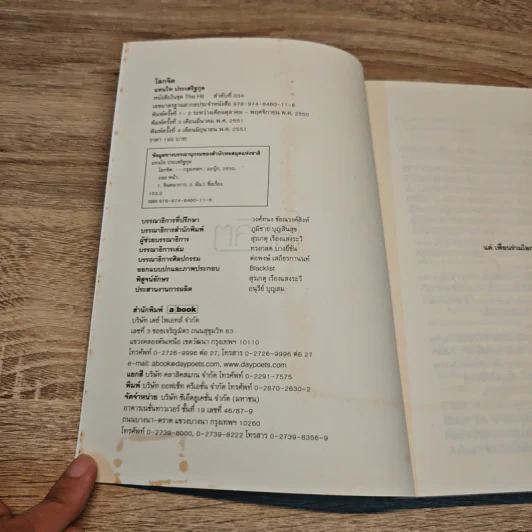 โลกจิต
แทนไท ประเสริฐกุล
หนังสือในชุด The Hit ลำดับที่ 034
เลขมาตรฐานสากลประจำหนังสือ 978-974-8460-11-6
พิมพ์ครั้งที่ 1 - 2 ระหว่างเดือนตุลาคม - พฤศจิกายน พ.ศ. 2550
พิมพ์ครั้งที่ 3 เดือนมีนาคม พ.ศ. 2551
พิมพ์ครั้งที่ 4 เดือนมิถุนายน พ.ศ. 2551
ราคา 185 บาท
ข้อมูลทางบรรณานุกรมของสำนักหอสมุดแห่งชาติ
แทนไท ประเสริฐกุล
โลกจิต. -- กรุงเทพฯ : อะบุ๊ก, 2550.
288 หน้า.
1. จินตนาการ. 2. จิต. I. ชื่อเรื่อง.
153.3
ISBN 978-974-8460-11-6
บรรณาธิการที่ปรึกษา วงศ์ทนง ชัยณรงค์สิงห์
บรรณาธิการสำนักพิมพ์ ภูมิชาย บุญสินสุข
ผู้ช่วยบรรณาธิการ สุรเกตุ เรืองแสงระวี
บรรณาธิการเล่ม ทรงกลด บางยี่ขัน
บรรณาธิการศิลปกรรม ต่อพงษ์ เสถียรกานนท์
ออกแบบปกและภาพประกอบ Blacklist
พิสูจน์อักษร สุรเกตุ เรืองแสงระวี
ประสานงานการผลิต อนุรีย์ บุญเสม
สำนักพิมพ์ a book
บริษัท เดย์ โพเอทส์ จำกัด
เลขที่ 3 ซอยเจริญมิตร ถนนสุขุมวิท 63
แขวงคลองตันเหนือ เขตวัฒนา กรุงเทพฯ 10110
โทรศัพท์ 0-2726-9996 ต่อ 27, โทรสาร 0-2726-9996 ต่อ 27
e-mail: abook@daypoets.com, www.daypoets.com
แยกสี บริษัท คลาสิคสแกน จำกัด โทรศัพท์ 0-2291-7575
พิมพ์ บริษัท ออฟเซ็ท ครีเอชั่น จำกัด โทรศัพท์ 0-2870-2630-2
จัดจำหน่าย บริษัท ซีเอ็ดยูเคชั่น จำกัด (มหาชน)
อาคารเนชั่นทาวเวอร์ ชั้นที่ 19 เลขที่ 46/87-9
ถนนบางนา-ตราด แขวงบางนา กรุงเทพฯ 10260
โทรศัพท์ 0-2739-8000, 0-2739-8222 โทรสาร 0-2739-8356-9
แด่ เพื่อนร่วมโลก